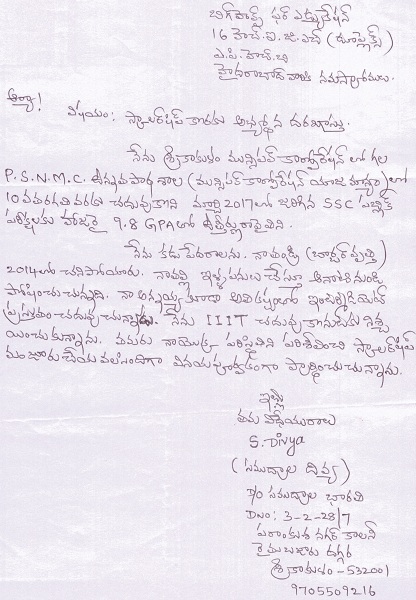 బిగ్ హెల్ప్ ఫర్ ఎడ్యుకేషన్
16 హెచ్.ఐ.జి.ఎచ్ (డూప్లెక్స్)
ఎ.పి.హెచ్.బి
హైదరాబాద్ వారికి నమస్కారములు.
ఆర్యా!
విషయం: స్కాలర్‌షిప్ కొరకు అభ్యర్థన దరఖాస్తు.
నేను శ్రీకాకుళం మున్సిపల్ కార్పొరేషన్ లో గల
P.S.N.M.C. ఉన్నత పాఠశాల (మున్సిపల్ కార్పొరేషన్ యాజమాన్యం) లో
10 వ తరగతి వరకు చదువుకొని మార్చి 2017లో జరిగిన SSC పబ్లిక్
పరీక్షలకు హాజరై 9.8 GPAతో ఉత్తీర్ణురాలైనది.
నేను కడు పేదరాలను. నా తండ్రి (
2014లో చనిపోయారు. నా తల్లి ఇళ్ళ పనులు చేస్తూ ఆనాటి నుండి
పోషించుచున్నది. నా అన్నయ్య కూడా ఇంటర్మీడియట్
ప్రస్తుతం చదువుచున్నాడు. నేను IIIT చదువు కొనుటకు నిశ్చ
యించుకున్నాను. తమరు నాయొక్క పరిస్థితిని పరిశీలించి స్కాలర్‌షిప్
మంజూరు చేయవలసిందిగా వినయపూర్వకంగా ప్రార్థించుచున్నాను.
ఇట్లు
తమ విధేయురాలు
S. Divya
(సముద్రాల దివ్య)
D/o సముద్రాల భారతి
D.No: 3-2-28/7
పరాంకుశ నగర్ కాలనీ
రైతుబజారు దగ్గర
శ్రీకాకుళం - 532001
9705509216